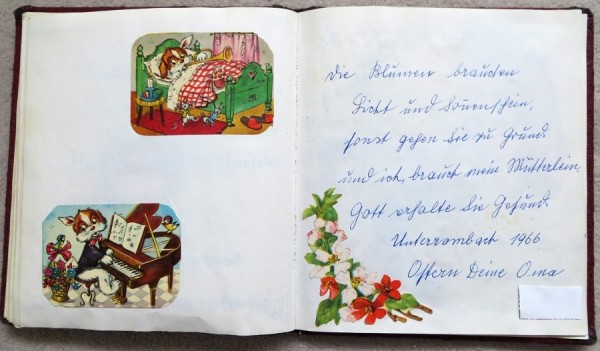 die Blumen brauchen
Licht und Sonenschein,
sonst gehen Sie zu Grund.
und ich, brauch mein Mütterlein,
Gott erhalte Sie Gesund.
Unterrombach 1966
Ostern Deine Oma